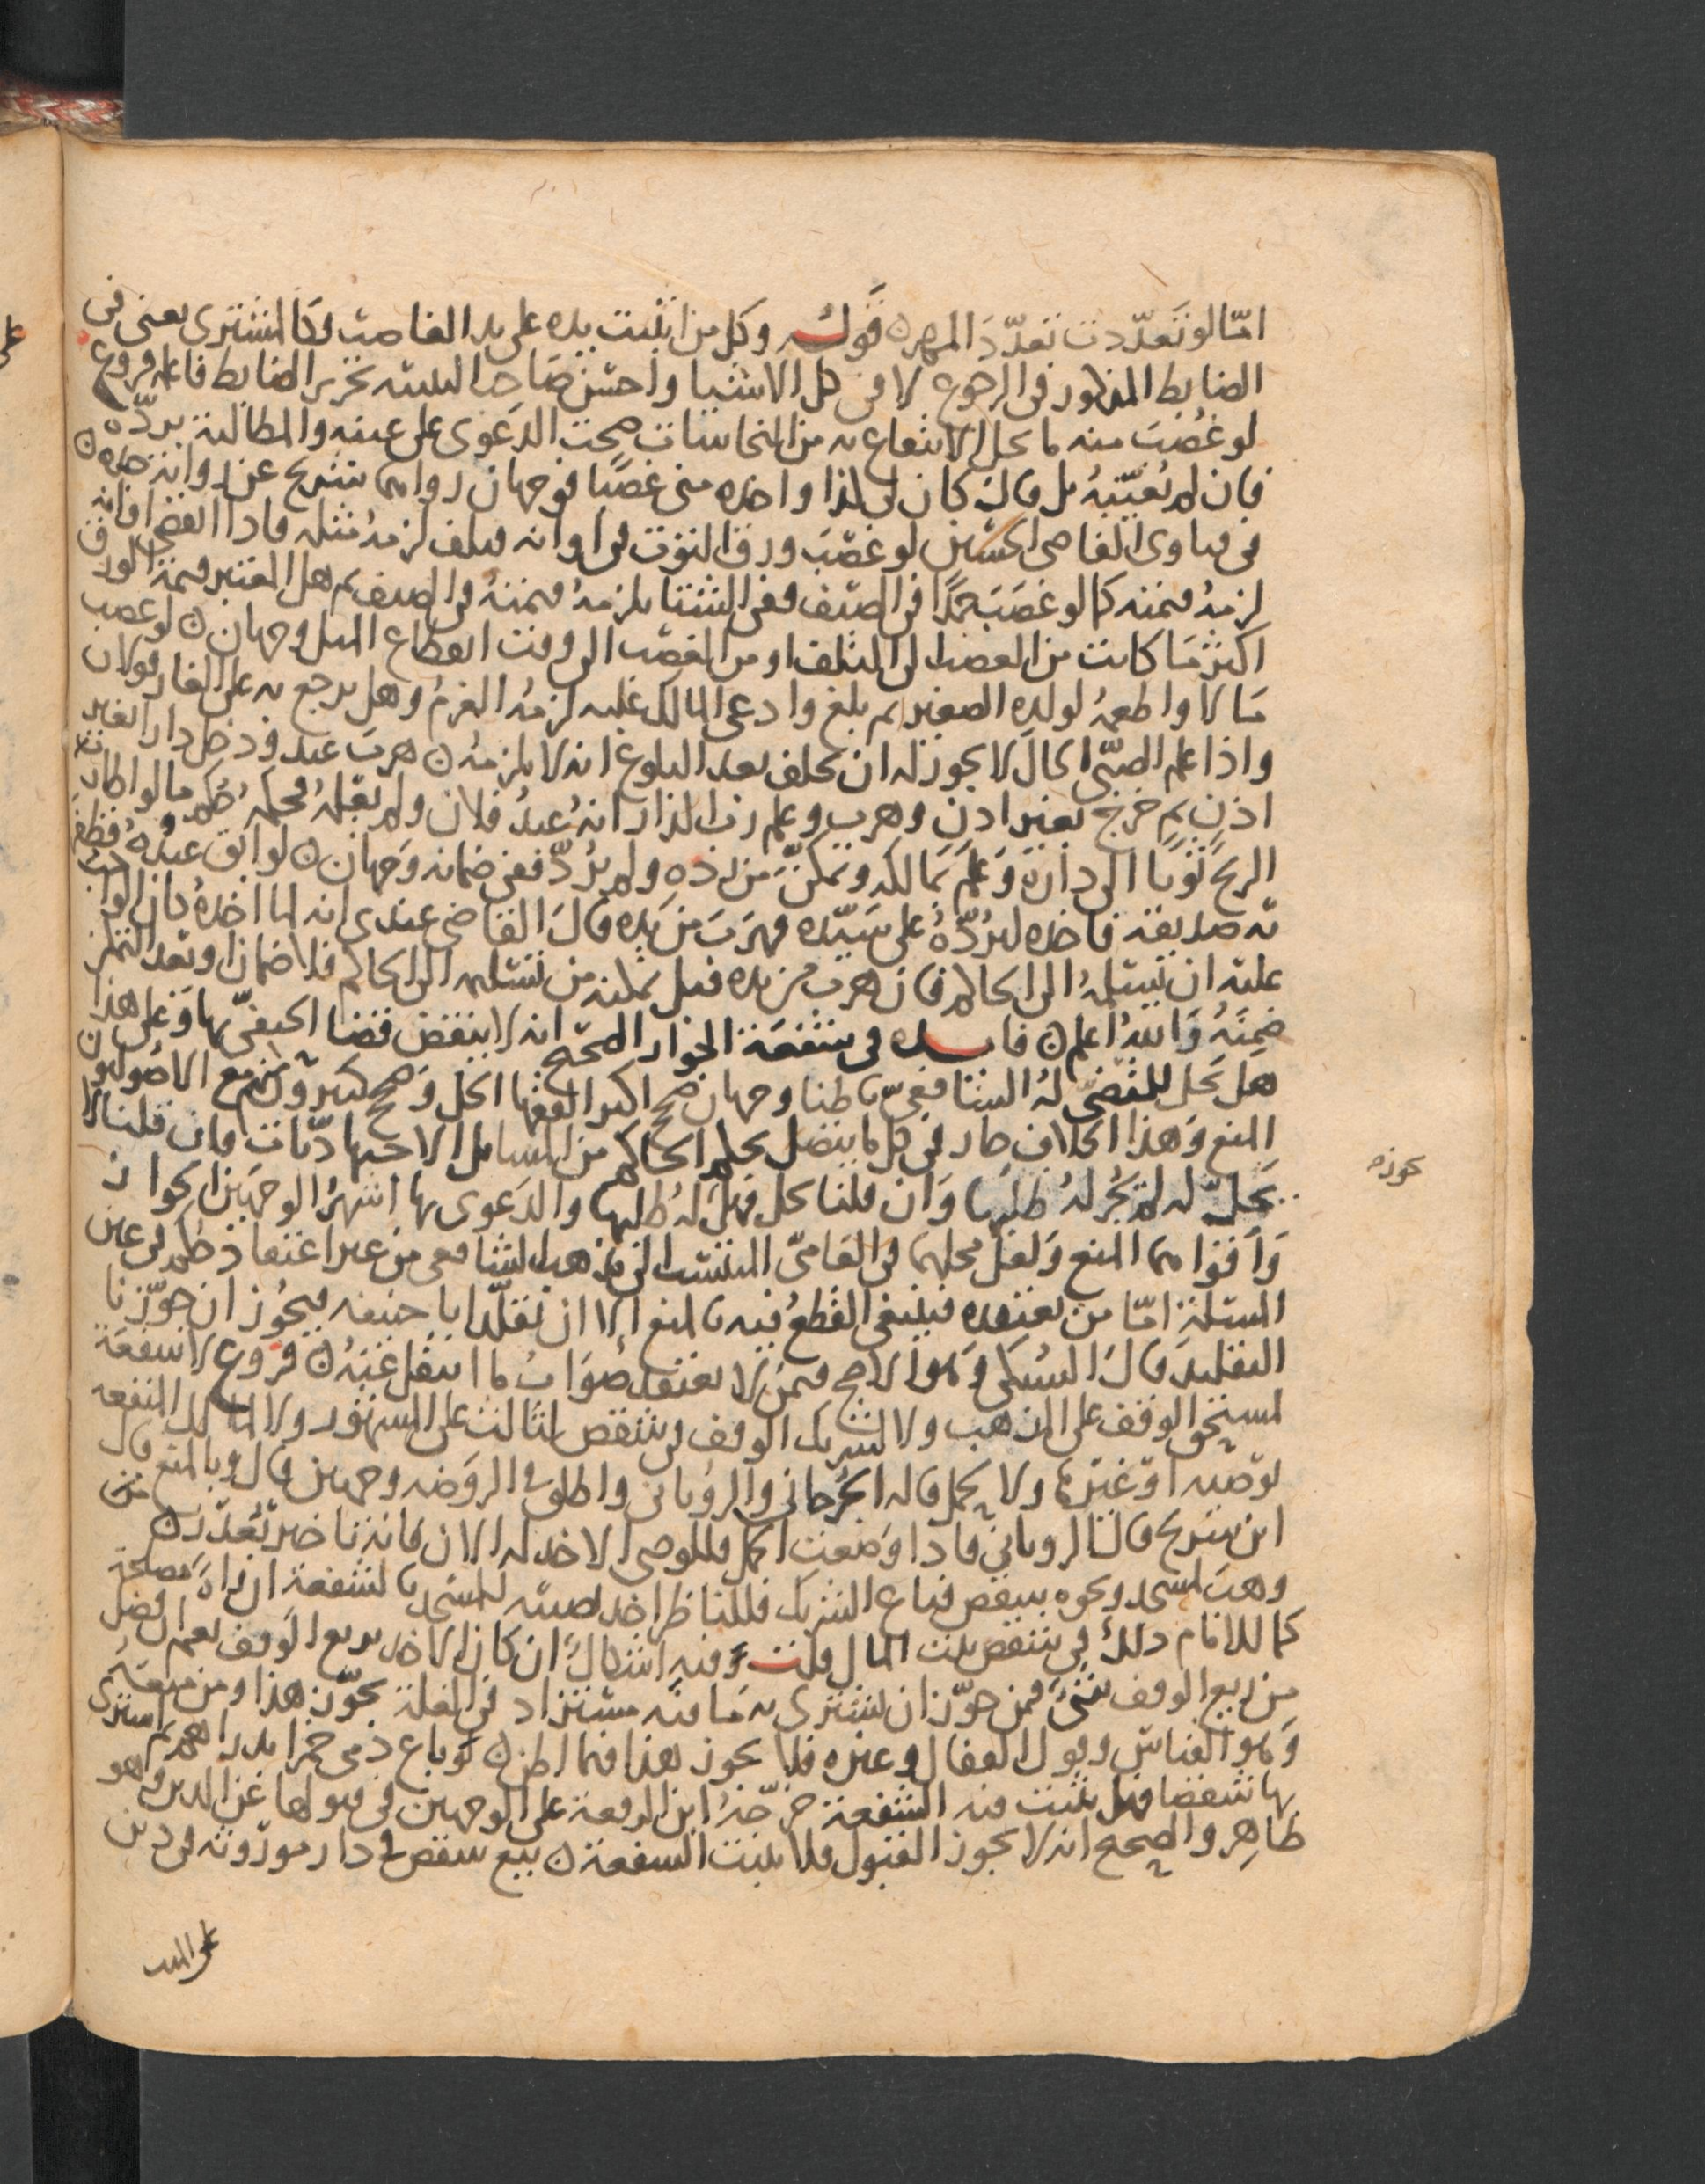 امّا لو تعدّدت تعدّد المهر ه قوله وكل من انبنت يده على يد الغاصب فكالمشترى يعنى فى
الضابط المذكور فى الرجوع لا فى كل الاشيا واحسن صاحب التنبيه تحرير الضابط فاعله فروع
لو غُصب منه ما يحل الانتفاع به من النجاسات صحت الدعوى على عينه والمطالبة بردّه
فان لم نعيّنه بل قال كان لى كذا واخذه منى غصبًا فوجهان رواهما شريح عن
فى فتاوى القاضى الحسين لو غصب ورق التوت فى اوانه فتلف لزمهُ مثله فاذا انقضى اوانه
لزمهُ قيمته كما لو غصب جمدًا فى الصيف ففى الشتا يلزمهُ قيمتهُ فى الصيف ثم هل المعتبر قيمة الورق
اكثر مَا كانت من الغصب الى التلف او من الغصب الى وقت انقطاع المثل وجهان ه لو غصب
مَالا واطعمهُ لولده الصغير ثم بلغ وادعى المالك عليه لزمهُ الغرمُ وهل يرجع به على الغار قولان
واذا علم الصبىّ الحال لا يجوز له ان يحلف بعد البلوغ انه لا يلزمهُ ه هرب عبد ودخل دار انسان بغير
اذن ثم خرج بغير اذن وهرب وعلم رب الدار انهُ عبدُ فلان ولم فحكمهُ حكم ما لو اطارت
الريح ثوبًا الى داره وعلم بمالكه وتمكنّ من رده ولم يردّ ففى ضمانه وجهان ه لو ابق عبدهُ فظفر
به صديقه فاخذه ليردّهُ على سيّده فهرب من يده قال القاضى عندى انه لما اخذهُ كان الواجب
عليه ان يسلمهُ الى الحاكم فان هرب من يده قبل تمكنه من تسليمه الى الحاكم فلا ضمان او بعد التمكن
ضمنهُ والله اعلم ه فايده فى شفعة الجوار الصحيح انه لا ينقض قضا الحنفىّ بها وعلى هذا
هل يحل للمقضىّ لهُ الشافعىّ باطنا وجهان صحح اكثر الفقها الحل وصحح كثيرون منهم مع الاصوليون
المنع وهذا الخلاف جار فى كل ما يتصل بحكم الحاكم من المسايل الاجتهاديّات فان قلنا لا
يحلّ له لم يجز لهُ طلبها وان قلنا يحل فهل لهُ طلبها والدعوى بها اشهرُ الوجهين الجواز
واقواهما المنع ولعل محلهما فى العامىّ المنتسب الى مذهب الشافعى من غير اعتقاد حكم فى عين
المسئلة امّا من يعتقده فينبغى القطعُ فيه بالمنع الا ان يقلّد ابا حنيفه فيجُوز ان جوّزنا
التقليد قال السُبكى وهو الارجح فيمن لا يعتقد صواب ما انتقل عنهُ ه فروع لا شفعة
لمستحق الوقف على المذهب ولا لشريك الوقف فى شقص لثالث على المشهور ولا لمالك المنفعه
بوصيه او غيرها ولا يحمل قاله الجُرجانى والرويانى واطلق فى الروضه وجهين قال وبالمنع قال
ابن سريج قال الرويانى فاذا وضعت الحمل فللوصى الاخذ له الان فانه تاخير بعذر ه من
وهب لمسجد ونحوه شقص فباع الشريك فللناظر اخذ نصيبه للمسجد بالشفعة ان راهُ مصلحة
كما للامام ذلك فى شقص بيت المال قلت وفيه اشكالٌ ان كان الاخذ بريع الوقف نعم ان فضل
من ريع الوقف شىء فمن جوّز ان يشترى به مَا فيه مستزاد فى الغلة يجوّز هذا ومن منعهُ
وهو القياس وبه قال القفال وغيره فلا يجوز هذا فيما اظن ه لو باع ذمى خمرا بدراهم ثم اشترى
بها شقصا فهل تثبت فيه الشفعة خرّجهُ ابن الرفعة على الوجهين فى قبولها عن الدين وهو
ظاهر والصحيح انه لا يجوز القبول فلا تثبت الشفعة ه بيع شقص فى دار موروثه فى دين
يجوزه
على الميت